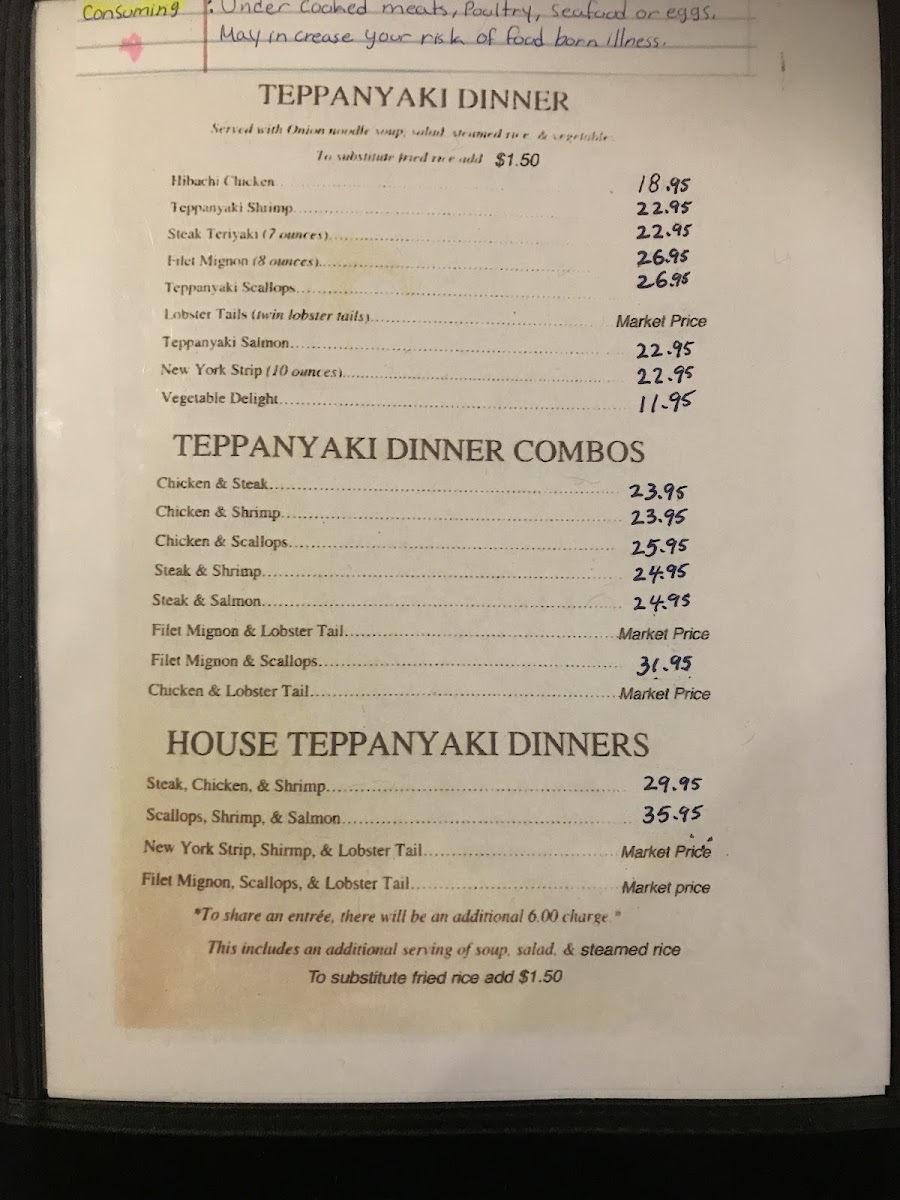 Consuming : Under Cooked meats, Poultry, Seafood or eggs.
May in crease your risk of food born illness.
TEPPANYAKI DINNER
Served with Onion noodle soup, salad, steamed rice & vegetables
To substitute fried rice add $1.50
Hibachi Chicken 18.95
Teppanyaki Shrimp 22.95
Steak Teriyaki (7 ounces) 22.95
Filet Mignon (8 ounces) 26.95
Teppanyaki Scallops 26.95
Lobster Tails (twin lobster tails) Market Price
Teppanyaki Salmon 22.95
New York Strip (10 ounces) 22.95
Vegetable Delight 11.95
TEPPANYAKI DINNER COMBOS
Chicken & Steak 23.95
Chicken & Shrimp 23.95
Chicken & Scallops 25.95
Steak & Shrimp 24.95
Steak & Salmon 24.95
Filet Mignon & Lobster Tail Market Price
Filet Mignon & Scallops 31.95
Chicken & Lobster Tail Market Price
HOUSE TEPPANYAKI DINNERS
Steak, Chicken, & Shrimp 29.95
Scallops, Shrimp, & Salmon 35.95
New York Strip, Shirmp, & Lobster Tail Market Price
Filet Mignon, Scallops, & Lobster Tail Market price
*To share an entrée, there will be an additional 6.00 charge.*
This includes an additional serving of soup, salad, & steamed rice
To substitute fried rice add $1.50